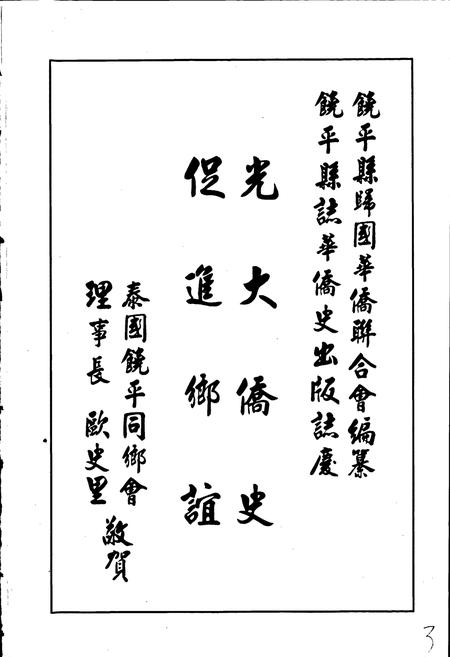 饒平縣歸國華僑聯合會編纂
饒平縣誌華僑史出版誌慶
光大僑史
促進鄉誼
泰國饒平同鄉會
理事長 歐史里 敬賀
3